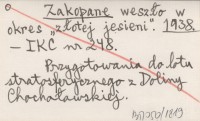 Zakopane weszło w
okres "złotej jesieni". 1938.
– IKC nr 248.
Przygotowania do lotu
stratosferycznego z Doliny
Chochołowskiej.